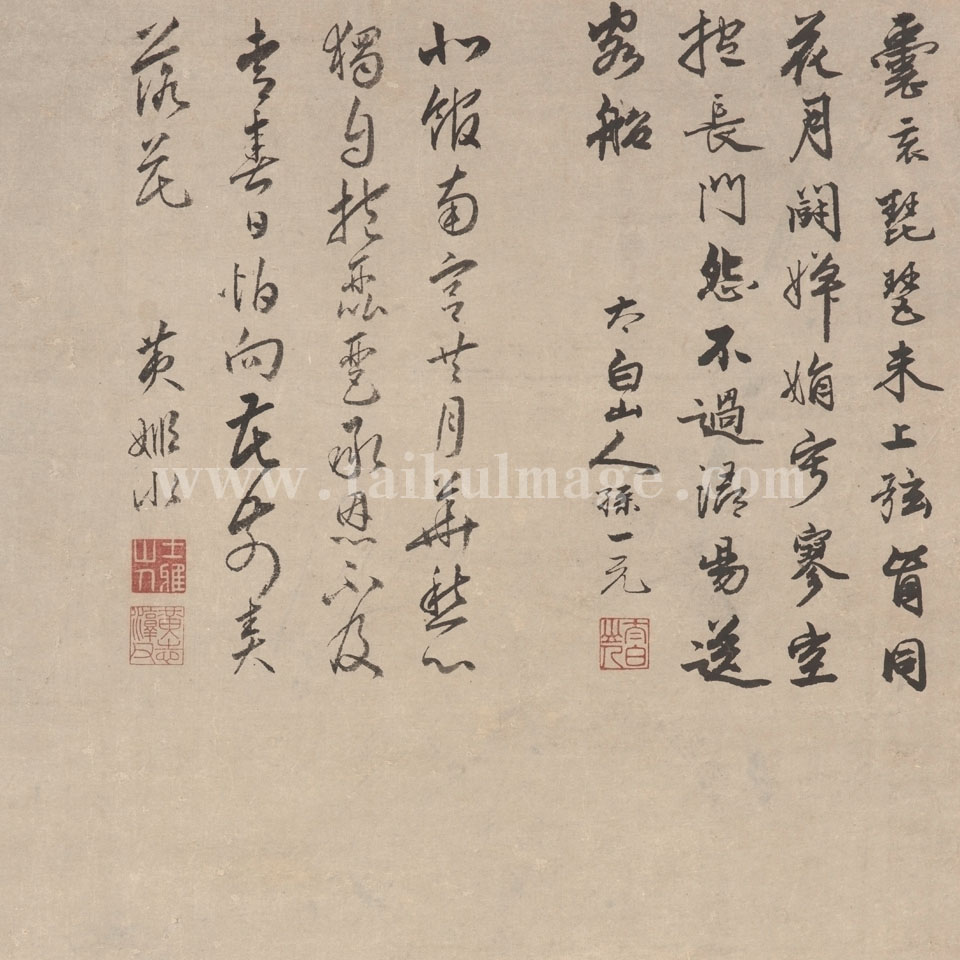 囊衣琵琶未上弦肯同
花月鬪嬋娟寂寥空
抱長門怨不過潯陽送
客船
太白山人孫一元
北館南宮共月華愁心
獨自抱琵琶承恩不及
青春日怕向花前奏
落花
黃姬水
www.taihuImage.com